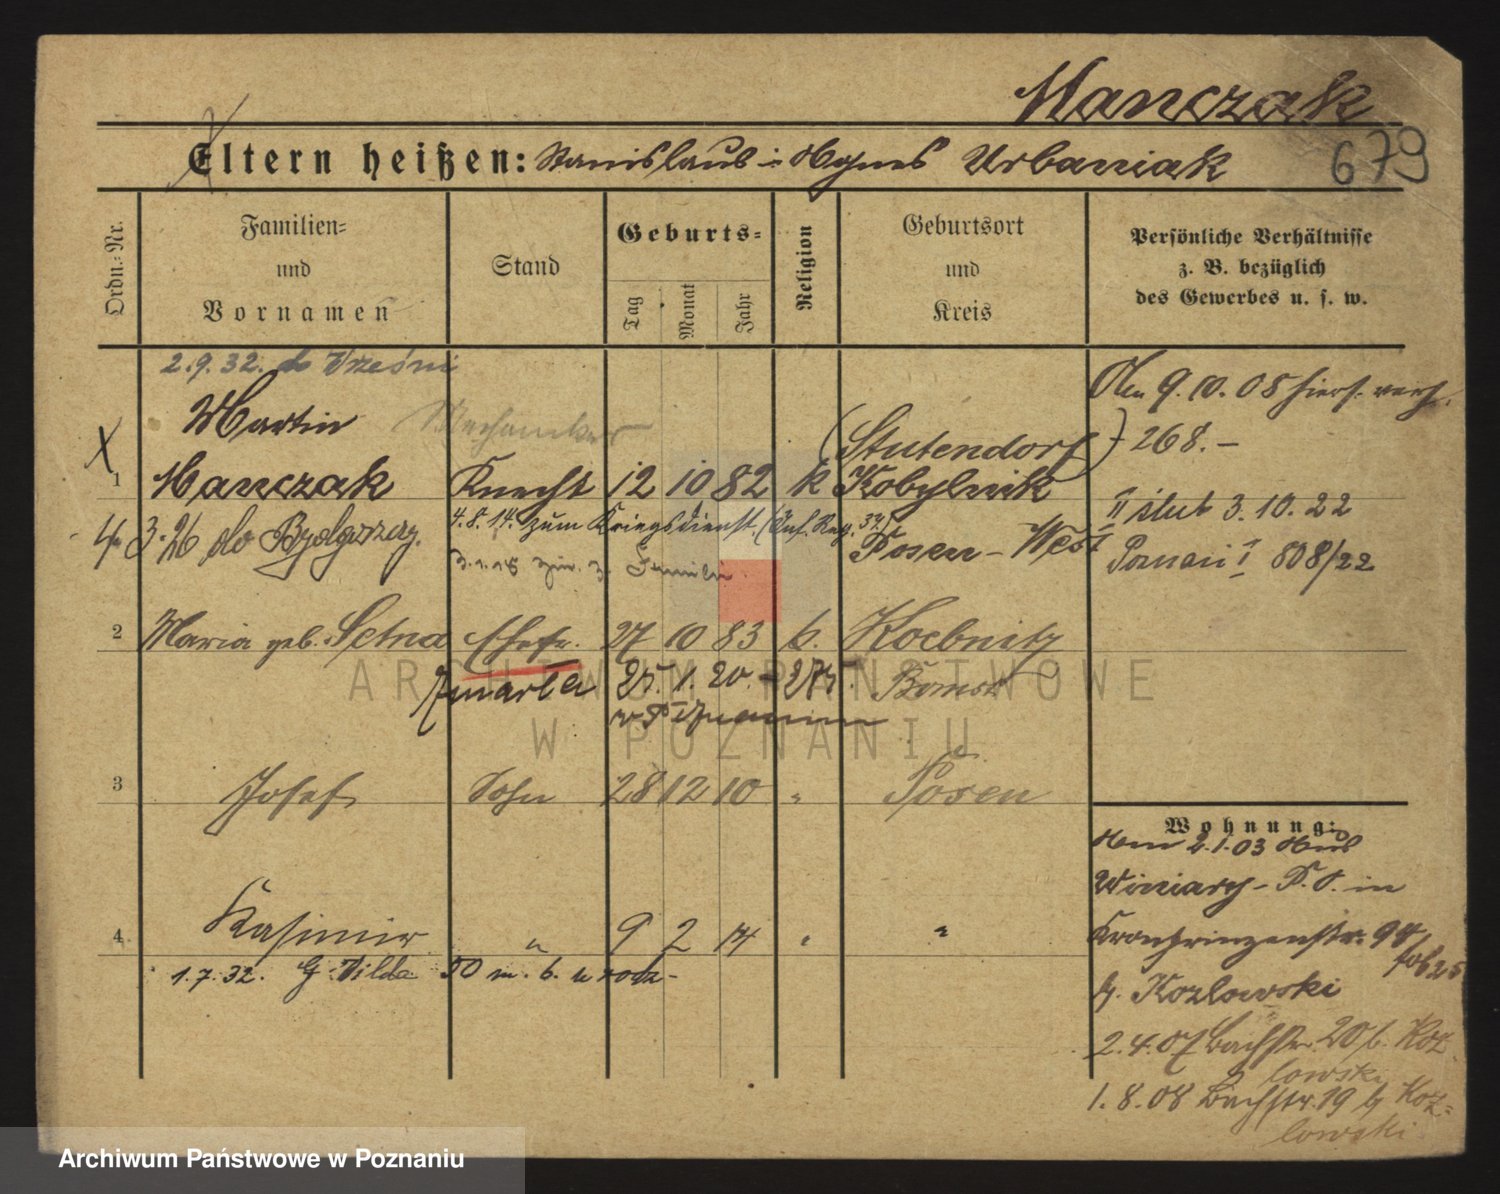 Manczak
Eltern heißen: Stanislaus i Agnes Urbaniak
679
Ordn.-Nr.
Familien-
und
Vornamen
Stand
Geburts-
Tag
Monat
Jahr
Religion
Geburtsort
und
Kreis
Persönliche Verhältnisse
z. B. bezüglich
des Gewerbes u. s. w.
2.9.32. do Wrześni
Am 9.10.08 hiers. verh.
268.-
X
1
Martin
Manczak
Mechaniker
Knecht
12 10 82 k
(Stutendorf)
Kobylnik
Posen-West
II ślub 3.10.22
Poznań I 808/22
3.26 do Bydgoszcz.
4.8.14. zum Kriegsdienst. (Inf. Reg. 37)
3.1.18
2
Maria geb. Setna
Ehefr.
27 10 83 k.
Koebnitz
Bomst
Zmarła 25.1.20. - 275.
w Poznaniu
3
Josef
Sohn
28 12 10 "
Posen
4
Kasimir
"
9 2 14 "
"
1.7.32. G. Wilda 50 m. 6. u rodz-
Wohnung:
2.1.03
Winiary - P. O. in
Kronprinzenstr. 94
b. Kozlowski
2.4.07 Bachstr. 20 b. Koz
lowski
1.8.08 Bachstr. 19 b Koz-
lowski
ARCHIWUM PAŃSTWOWE
W POZNANIU
Archiwum Państwowe w Poznaniu